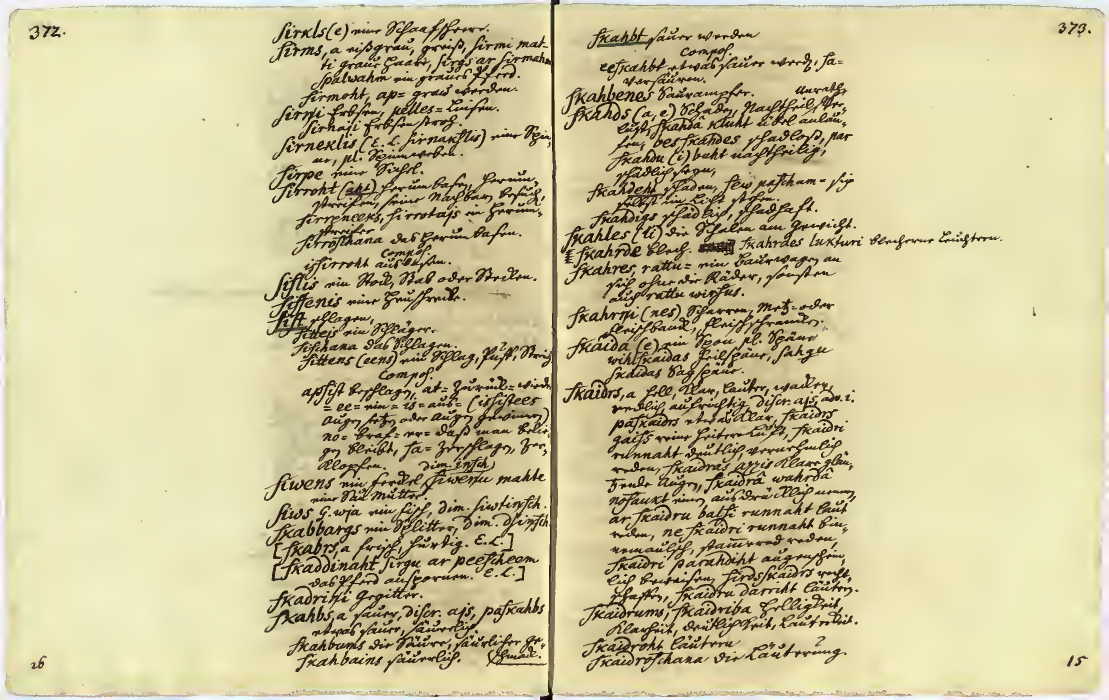 372.
sirkls (e) eine Schaafscheere.
sirms, a eißgrau, greiß, sirmi mat-
ti graue Haare, sirgs ar sirmahm
spalwahm ein graues Pferd.
sirmoht, ap= grau werden.
sirni Erbsen, pelles= Linsen.
sirnaji Erbsenstroh.
sirneklis (E. L. sirnakslis) eine Spin-
ne, pl. Spinneweben.
sirpe eine Sichel.
sirroht (aht) herum , herum-
streifen, seine Nachbarn besuch.
sirrotajs ein herum-
streifer
sirroschana das herum .
Compos.
issirroht .
sislis ein Stock, Stab oder Stecken.
sissenis eine Heuschrecke.
sist schlagen,
sittejs ein Schläger.
sischana das Schlagen.
sittens (eens) ein Schlag, Puff, Streich
Compos.
apsist beschlagen, at= zurück= wied
= ee= ein= is= aus= (issistees
Augen oder Augen gewinnen)
no= = er= daß man
gen bleibt, sa= zerschlagen, zer-
klopfen. dim. insch
siwens ein Ferkel, siwenu mahte
eine Sau Mutter.
siws G. wja ein Fisch, dim. siwtinsch.
skabbargs ein Splitter, dim. dsinsch.
[skabrs, a frisch, hurtig. E. L.]
[skaddinaht sirgu ar peescheem
das Pferd anspornen. E. L.]
skadrini Gegitter.
skahbs, a sauer, discr. ajs, paskahbs
etwas sauer, säuerlich
skahbums die Säure, säurlicher Ge-
skahbains säuerlich. schmack.
26
373.
skahbt sauer werden
Compos.
eeskahbt etwas sauer werd, sa=
versäuren.
skahbenes Saurampfer. Unrath
skahds (a, e) Schaden, Nachtheil, Ver-
lust, skahdâ kluht übel anlau-
fen, bes skahdes schadloß, par
skahdu (i) buht nachtheilig,
schädlich seyn,
skahdeht schaden, sew pascham= sich
selbst im Licht stehen.
skahdigs schädlich, schadhaft.
skahles (ti) die Schalen am Gewicht.
skahrde Blech. skahrdes lukturi blecherne Leuchtern.
skahres, rattu= ein Baurwagen an
sich ohne die Räder, sonsten
auch rattu wirsus.
skahrni (nes) Scharren, Metz= oder
Fleischbank, Fleischschrancken.
skaida (e) ein Spon pl. Späne
wihlskaidas Feilspäne, sahgu
skaidas Sagspäne.
skaidrs, a hell, klar, lauter, wacker,
redlich aufrichtig discr. ajs, adv. i.
paskaidrs etwas klar, skaidrs
gaiss reine heitere Luft, skaidri
runnaht deutlich, vernehmlich
reden, skaidras azzis klare glän-
zende Augen, skaidrâ wahrdâ
nosaukt einen ausdrücklich nennen,
ar skaidru balsi runnaht laut
reden, ne skaidri runnaht un-
vernemlich, stammeled reden,
skaidri parahdiht augenschein-
lich beweisen, sirdsskaidrs recht-
schaffen, skaidru darriht läutern.
skaidrums, skaidriba Helligkeit,
Klarheit, Deutlichkeit, Lauterkeit.
skaidroht läutern
skaidroschana die Läuterung.
15